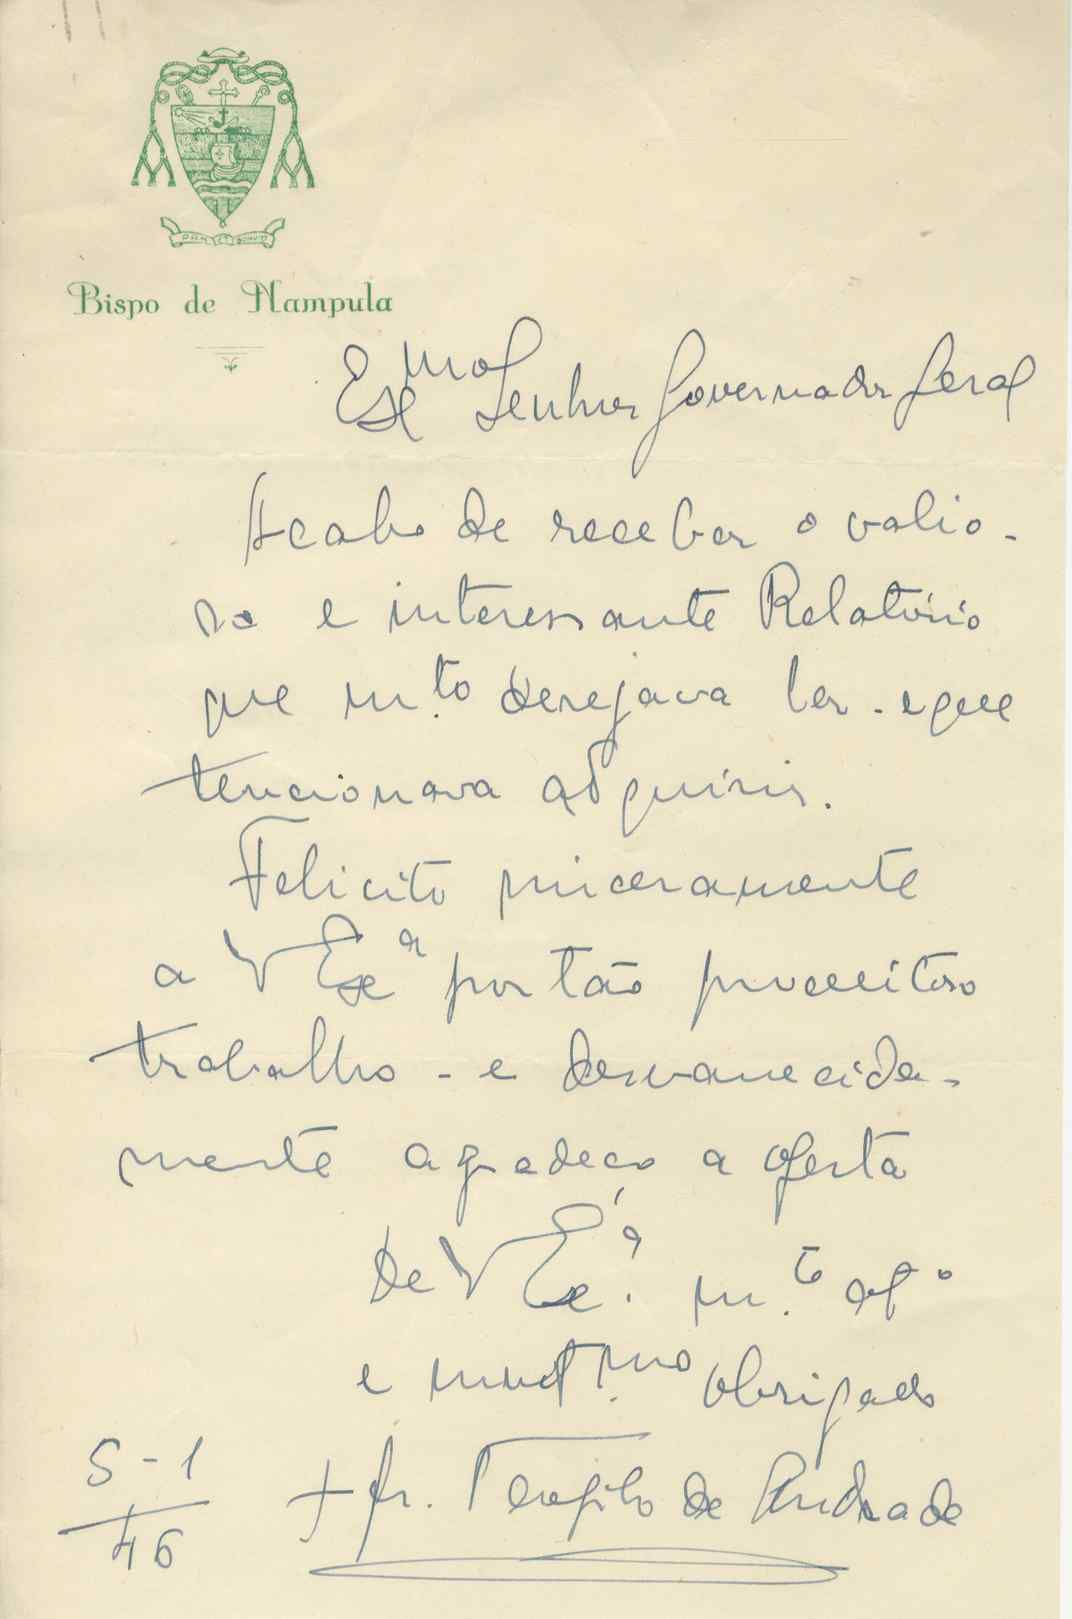 Bispo de Nampula
Exmo Senhor Governador Geral
Acabo de receber o valio-
so e interessante Relatório
que m.to desejava ler - e que
tencionava adquirir.
Felicito sinceramente
a V Exa por tão proveitoso
trabalho - e desvanecida-
mente agradeço a oferta
De V Exa. m.to
e obrigado
+ fr. Teófilo de Andrade
5-1
46